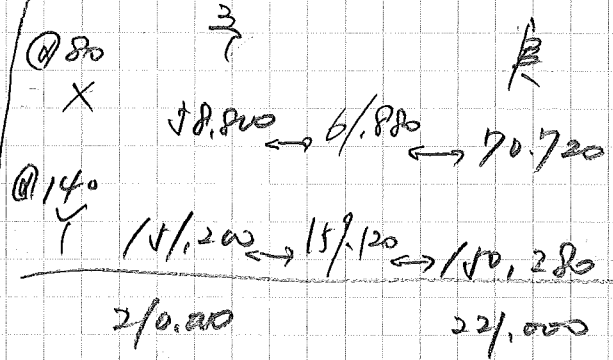 予 実
@80
X 58.800 ↔ 61.880 ↔ 70.720
@140
Y 151.200 ↔ 159.120 ↔ 150,280
210.000 221.000